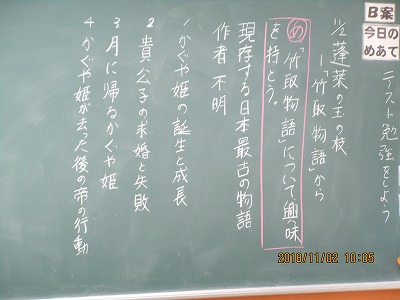 B案
今日の
めあて
テスト勉強をしよう
11/2 蓬莱の玉の枝
―「竹取物語」から
め「竹取物語」について興味
を持とう。
現存する日本最古の物語
作者 不明
1 かぐや姫の誕生と成長
2 貴公子の求婚と失敗
3 月に帰るかぐや姫
4 かぐや姫が去った後の帝の行動
2018/11/02 10:05